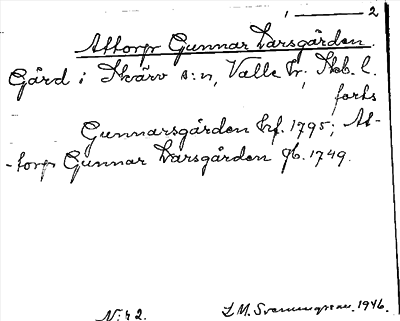 1 ——— 2
Attorp Gunnar Larsgården.
Gård i Skärv s:n, Valle hr; Skb. l.
forts
Gunnarsgården hrf. 1795; At-
-torp Gunnar Larsgården gb. 1749.
N:r 2.
L. M. Svenungsson. 1946.